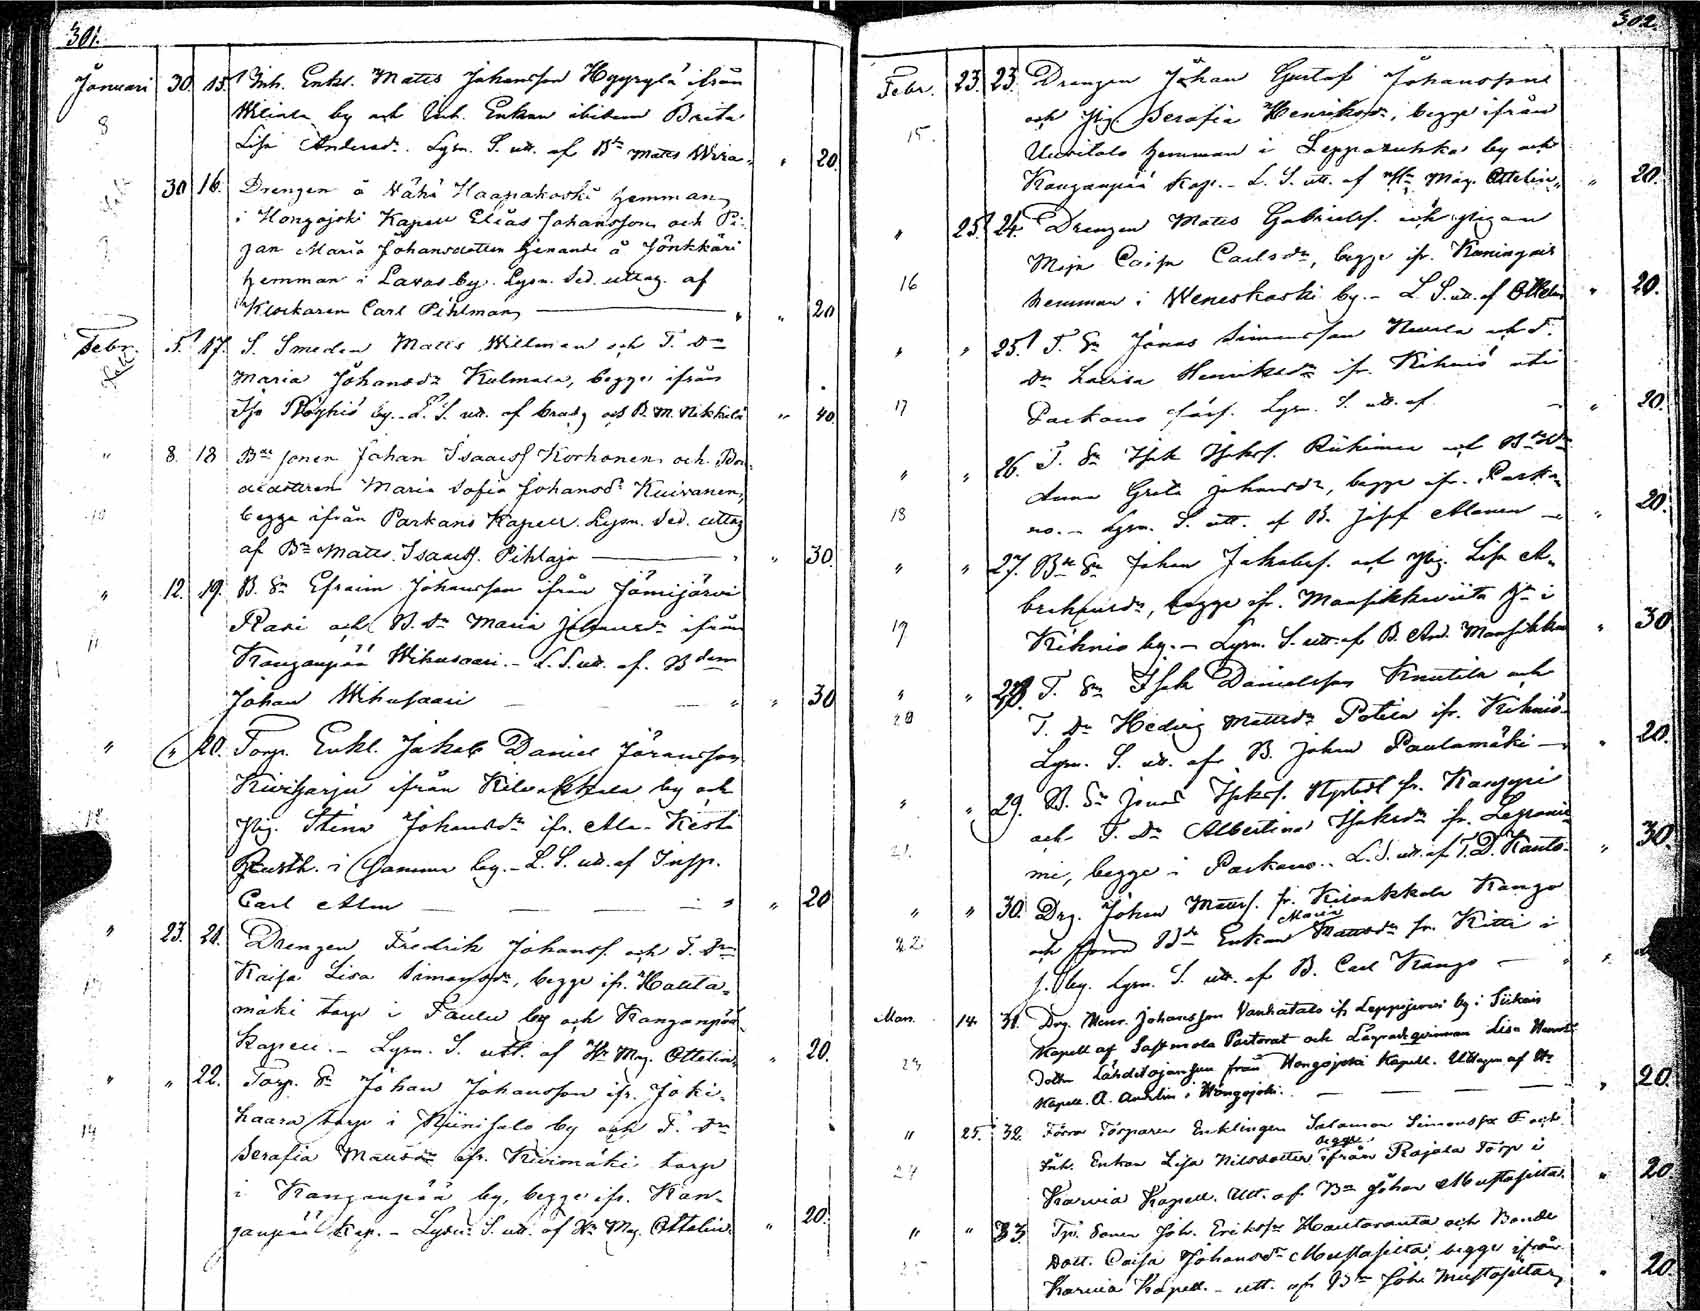 301.
Januari 30. 15. Inh. Enkl. Matts Johansson Hyyrylä ifrån
by och Inh. Enkan ibidem Brita
Lisa Andersdr. Lysn. S. utt. af Bn Matts 20.
30 16. Drengen å Wähä Haapakoski hemman
i Hongojoki Kapell Elias Johansson och Pi-
gan Maria Johansdotter tjenande å Jönkkäri
hemman i Lavas by. Lysn. Sed. uttag. af
Klockaren Carl Pihlman 20
Febr. 5. 17. S. Smeden Matts Willman och T. Dn
Maria Johansdr Kulmala, begge ifrån
by. L. S. utt. af och B. M. Nikkilä " 40.
" 8. 18 Bde sonen Johan Isaacss Korhonen och Bon-
dedottren Maria Sofia Johansdr Kuivanen,
begge ifrån Parkano Kapell. Lysn. Sed. uttag
af Bn Matts Isaacss. Pihlaja " 30.
" 12. 19. B. Sn Efraim Johansson ifrån Jämijärvi
och B. Dn Maria Johansdr ifrån
Kangaanpää Wihusaari. - L. S. utt. af. Bdem
Johan Wihusaari " 30
" " 20. Torp. Enkl. Jakob Daniel Göransson
Kiviharju ifrån Kilvakkala by och
Pig. Stina Johansdr ifr. Ala-Kesti
Rusth. i by. - L. S. utt. af Insp.
Carl Alm " 20
" 23. 21. Drengen Fredrik Johanss. och T. Dn
Kaisa Lisa Simonsdr, begge ifr. Hauta-
mäki torp i by och Kangaanpää
Kapell. - Lysn. S. utt. af Hr Mag. Ottelin " 20.
" " 22. Torp. Sn Johan Johansson ifr. Joki-
haara torp i Niinisalo by och T. Dn
Serafia Mattsdr ifr. Kivimäki torp
i Kangaanpää by, begge ifr. Kan-
gaanpää Kap. - Lysn. S. utt. af Hr Mag. Ottelin " 20.
302.
Febr. 23. 23. Drengen Johan Gustaf Johansson
och Pig. Serafia Henriksdr, begge ifrån
Uusitalo hemman i Lepparuhka by och
Kangaanpää Kap. - L. S. utt. af Hr Mag. Ottelin " 20.
" 25. 24. Drengen Matts Gabrielss. och pigan
Maja Caisa Carlsdr, begge ifr. Kuningas
hemman i Weneskoski by. - L. S. utt. af Ottelin " 20.
" " 25. T. Sn Jonas Simonsson och T.
Dn Lovisa Henriksdr ifr. Kihniö uti
Parkano förs. Lysn. S. utt. af " 20.
" " 26. T. Sn Isak Isaks. Riihimaa och Bde Dn
Anna Greta Johansdr, begge ifr. Parka-
no. - Lysn. S. utt. af B. Josef Alanen " 20.
" " 27. Bde Sn Johan Jakobss. och Pig. Lisa A-
brahamsdr, begge ifr. Mansikkaviita Hn i
Kihniö by. - Lysn. S. utt. af B. And. Mansikka " 30
" " 28. T. Sn Isak Danielsson Knuutila och
T. Dn Hedvig Mattsdr Potila ifr. Kihniö.
Lysn. S. utt. af B. Johan Paulamäki " 20.
" " 29. B. Sn Jonas Isaks. fr. Kangyri
och T. Dn Albertina Isaksdr fr. Leppänie-
mi, begge i Parkano. L. S. utt. af T. D. Kanto " 30.
" " 30. Drg. Johan Mattss. fr. Kilvakkala Kango
och förra Bde Enkan Maria Mattsdr fr. Kitti i
s. by. Lysn. S. utt. af B. Carl Kango
Mars 14. 31. Drg. Henr. Johansson Vanhatalo ifr Leppijärvi by i Siikais
Kapell af Sastmola Pastorat och Lägradqvinnan Lisa Henriks
Dotter Lähdetajangsu från Hongojoki Kapell. Uttagen af Hr
Kapell. A. Aurelin i Hongojoki. " 20.
" 25. 32. Förra Torparen Enklingen Salamon Simonss F och
Inh. Enkan Lisa Nilsdotter begge ifrån Rajala Torp i
Karvia Kapell. Utt. af Bn Johan Mustasilta. " 20
" " 33. Tp. Sonen Joh. Erikss Hautaranta och Bonde
Dott. Caisa Johansdr Mustasilta, begge ifrån
Karvia Kapell. - utt. af Bn Joh. Mustasilta " 20.